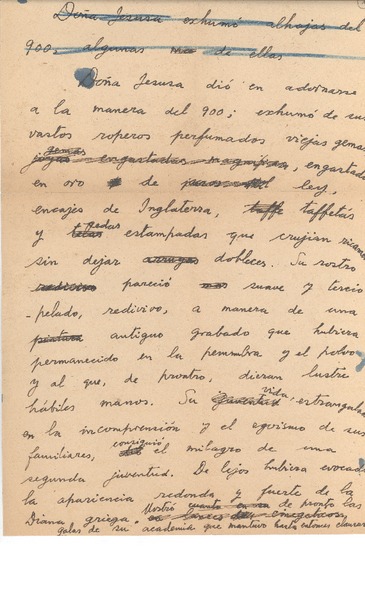 Doña Jesusa exhumó alhajas del
900. algunas de ellas
Doña Jesusa dió en adornarse
a la manera del 900; exhumó de sus
vastos roperos perfumados viejas gemas
gemas
joyas engastadas, engastada
en oro de ley,
encajes de Inglaterra, taffe taffetas
y telas sedas estampadas que crujían
sin dejar arrugas dobleces. Su rostro
redivivo pareció suave y tercio
-pelado, redivivo, a manera de una
pintura antiguo grabado que hubiera
permanecido en la penumbra y el polvo
y al que, de prontro, dieran lustre
hábiles manos. Su juventud vida, estrangulada
en la incomprensión y el egoismo de sus
familiares, consiguió el milagro de una
segunda juventud. De lejos hubiera evocado
la apariencia redonda y fuerte de la
Diana griega. Mostró de pronto las
galas de su academia que mantuvo hasta entonces